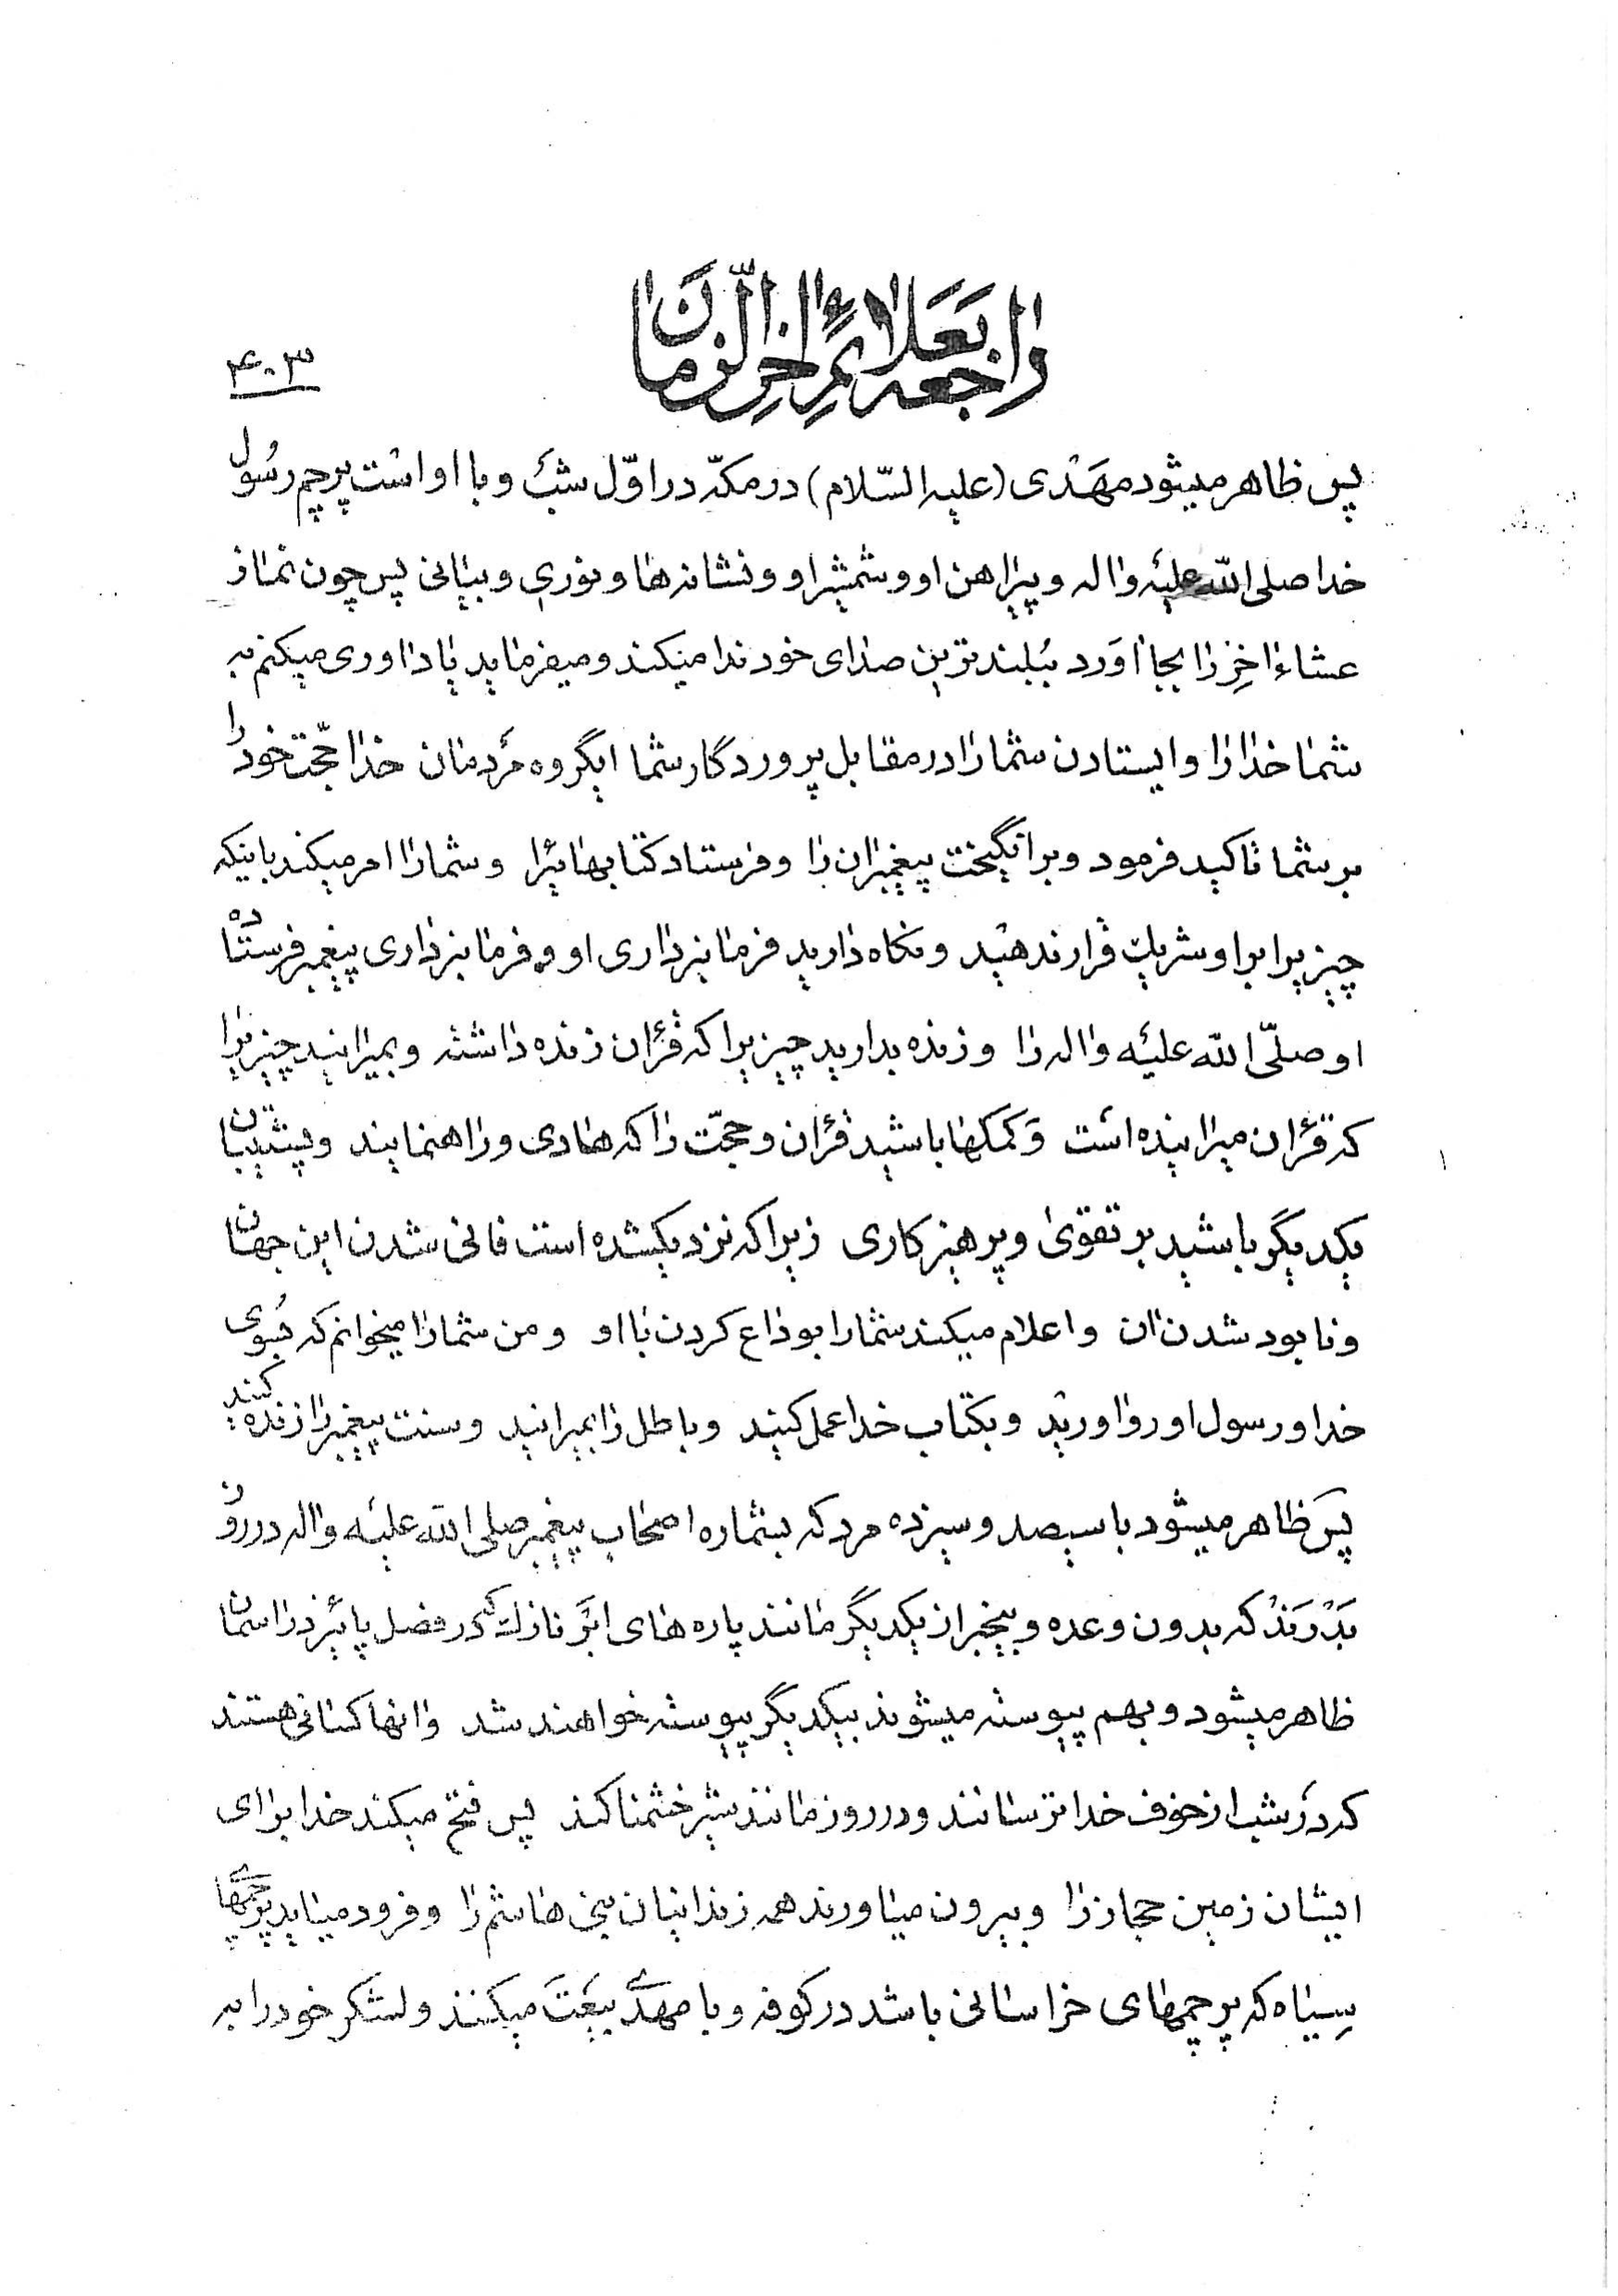 راجعه بعلائم اخر الزمان
۴۰۳
پس ظاهر میشود مهدی (علیه السّلام) در مکّه در اوّل شب و با او است پرچم رسُول
خدا صلی اللّه علیه واله و پیراهن او و شمشیر او و نشانه ها و نوری و بیانی پس چون نماز
عشاء اخِر را بجا اورد ببلند ترین صدای خود ندا میکند و میفرماید یاداوری میکنم به
شما خدا را و ایستادن شما را در مقابل پروردگار شما ایگروه مردمان خدا حجّت خود را
بر شما تاکید فرمود و برانگیخت پیغمبران را و فرستاد کتابهائیرا و شما را امر میکند باینکه
چیزیرا براو شریک قرار ندهید و نگاه دارید فرمانبرداری او و فرمانبرداری پیغمبر فرستاده
او صلّی اللّه علیه واله را و زنده بدارید چیزیرا که قرءان زنده داشته و بمیرانید چیزیرا
که قرءان میرانیده است و کمکها باشید قرءان و حجّت را که هادی و راهنمایند و پشتیبان
یکدیگر باشید بر تقوی و پرهیزکاری زیرا که نزدیکشده است فانی شدن این جهان
و نابود شدن ان و اعلام میکند شما را بوداع کردن با او و من شما را میخوانم که بسوی
خدا و رسول او رو اورید و بکتاب خدا عمل کنید و باطل را بمیرانید و سنت پیغمبر را زنده کنید
پس ظاهر میشود با سیصد و سیزده مرد که بشماره اصحاب پیغمبر صلی اللّه علیه واله در روز
بَدْرَنْد که بدون وعده و بیخبر از یکدیگر مانند پاره های ابر نازک که در فصل پائیز در اسمان
ظاهر میشود و بهم پیوسته میشوند بیکدیگر پیوسته خواهند شد و انها کسانی هستند
که در شب از خوف خدا ترسانند و در روز مانند شیر خشمناکند پس فتح میکند خدا برای
ایشان زمین حجاز را و بیرون میاورند همه زندانیان بنی هاشم را و فرود میاید پرچمهای
سِیاه که پرچمهای خراسانی باشد در کوفه و با مهدی بیعَت میکنند و لشکر خود را به